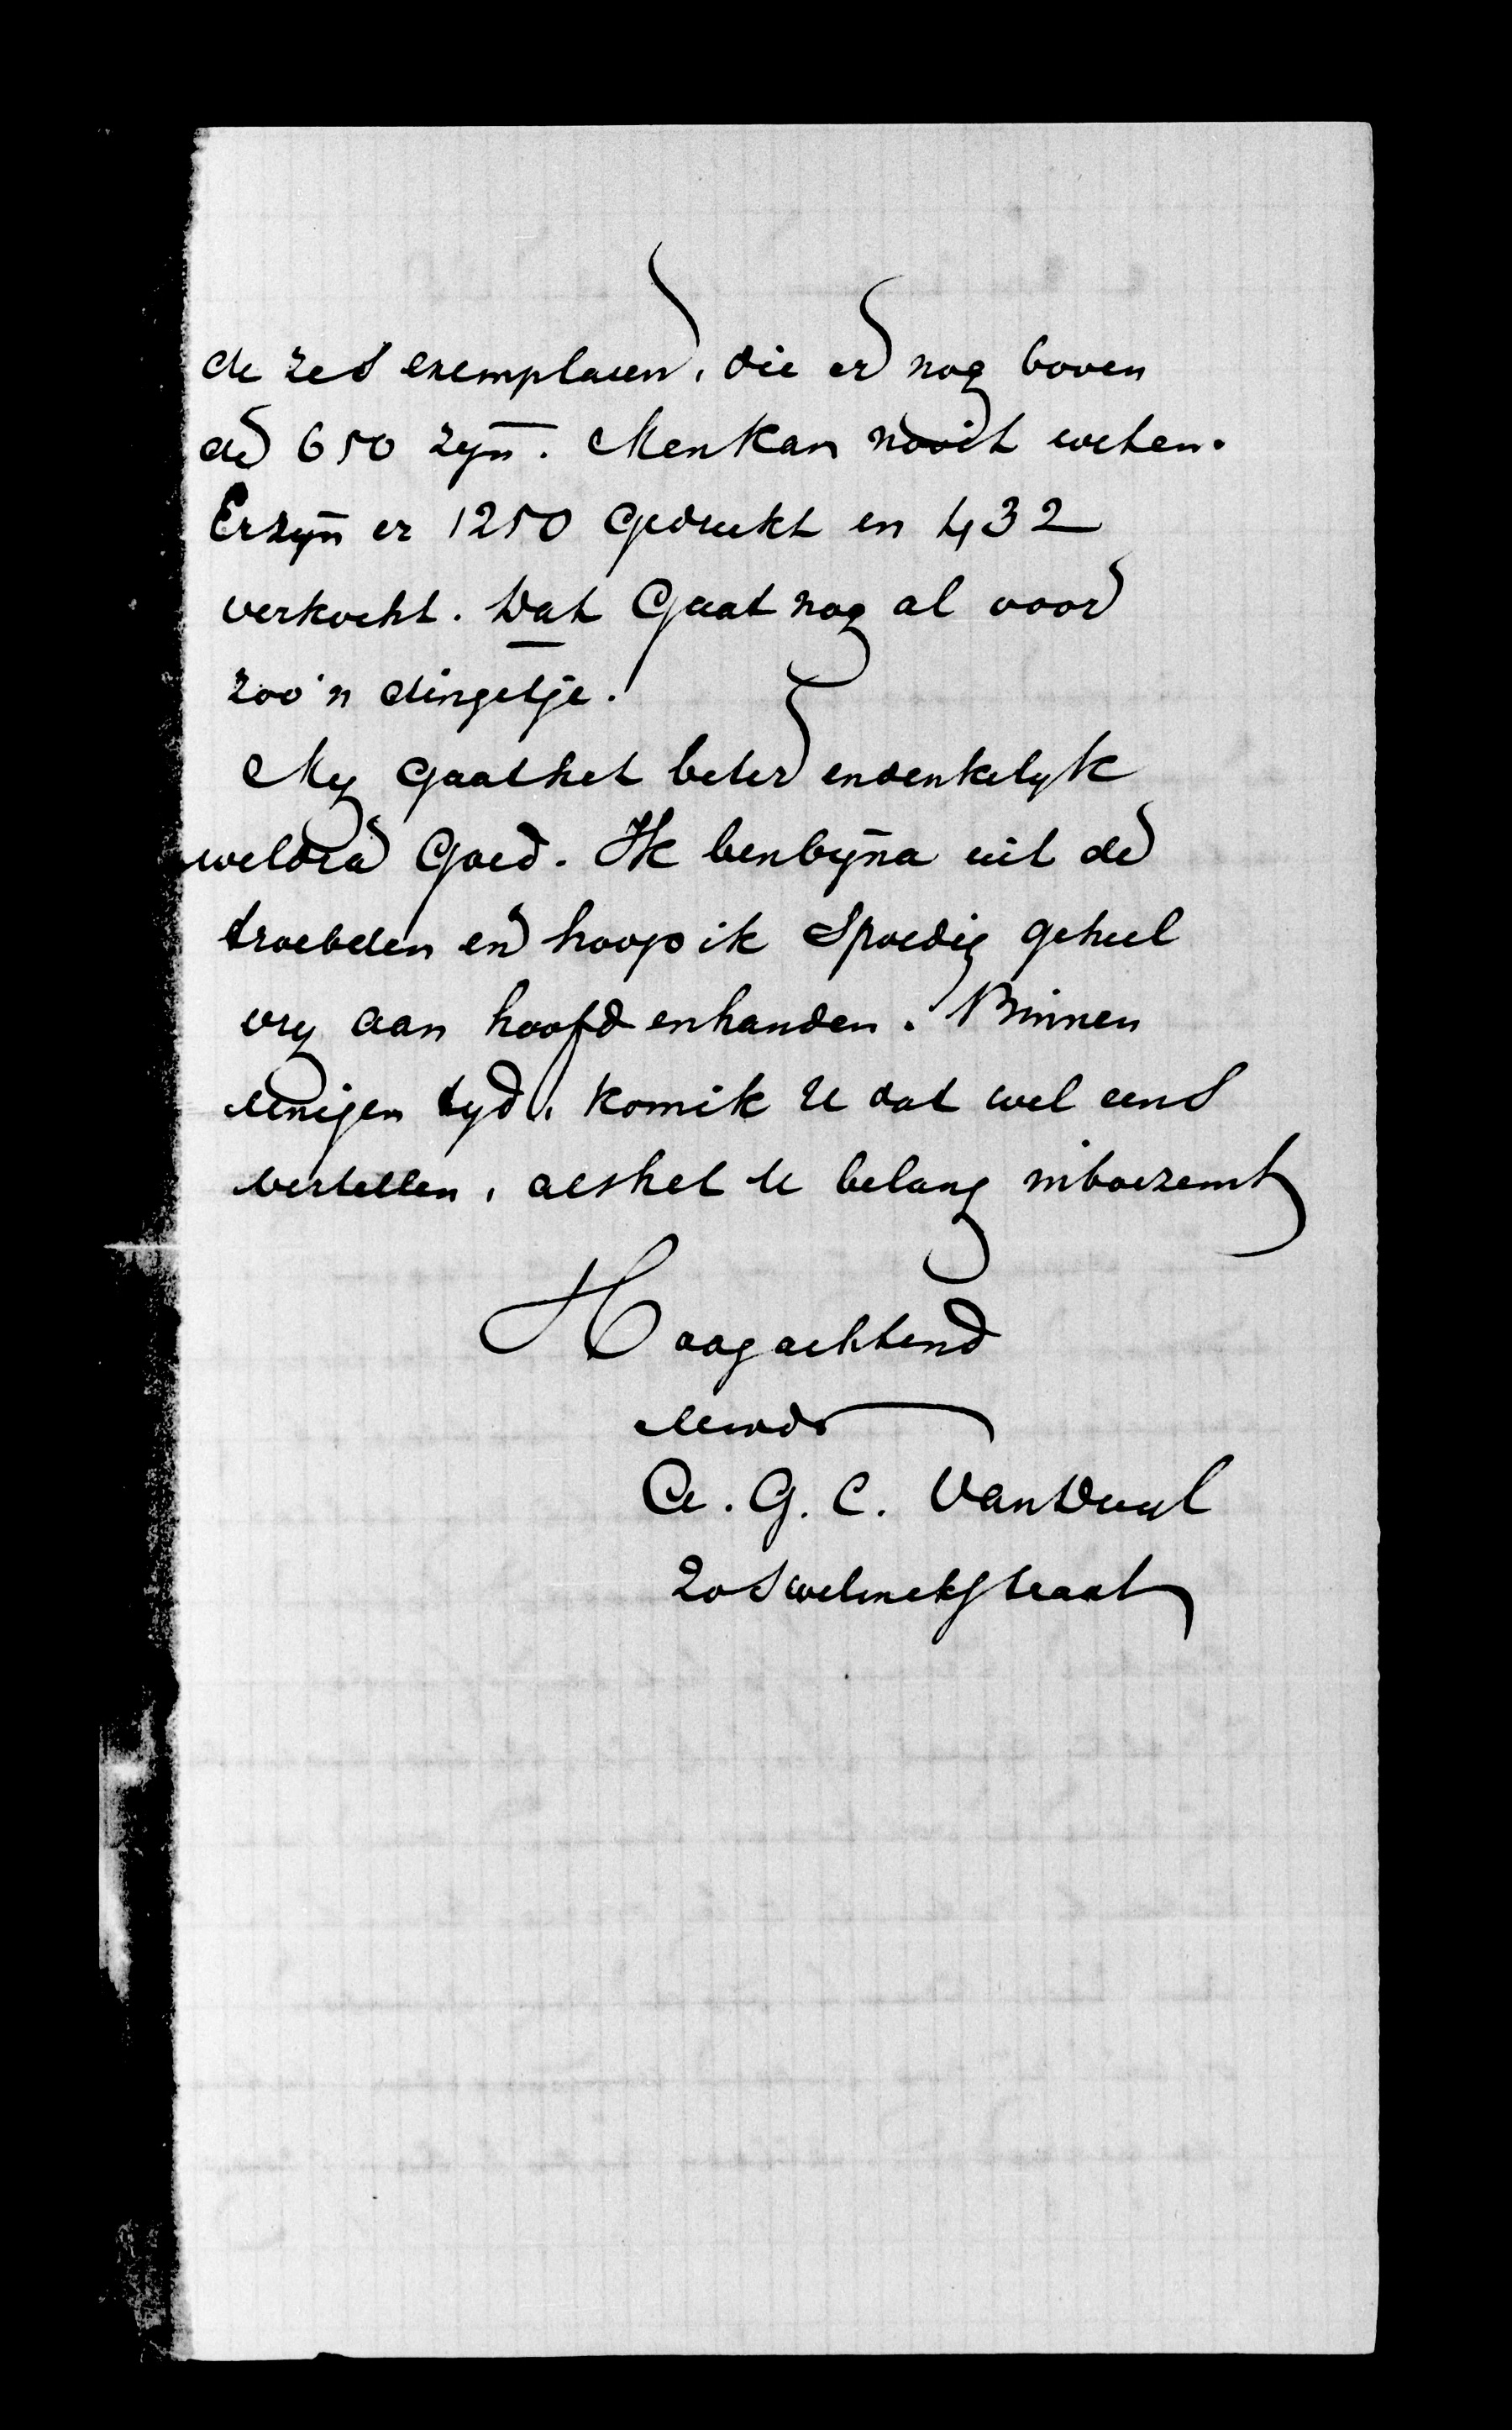 de zes exemplaren, die er nog boven
de 650 zyn. Men kan nooit weten.
Er zyn er 1250 gedrukt en 432
verkocht. Dat gaat nog al voor
zoo'n dingetje.
My gaat het beter en denkelyk
weldra goed. Ik ben byna uit de
troebelen en hoop ik spoedig geheel
vry aan hoofd en handen. Binnen
eenigen tyd, kom ik U dat wel eens
vertellen, als het U belang inboezemt
Hoogachtend
Uwdr
A. G. C. Van Duyl
20 Swelinckstraat